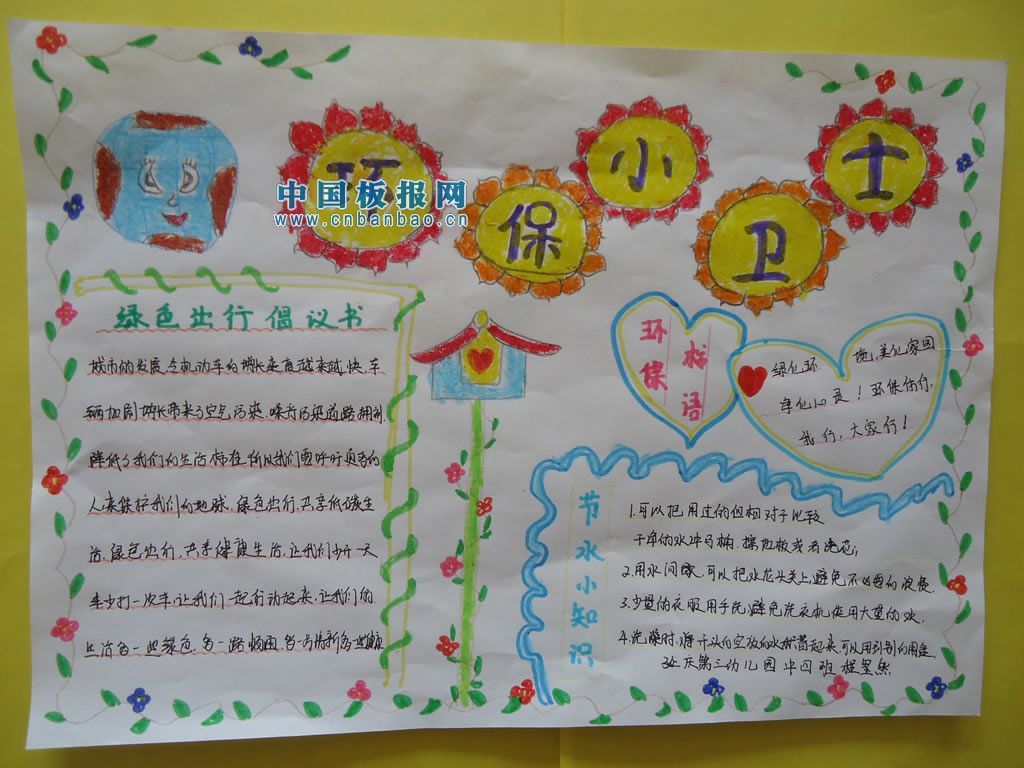 环保小卫士
中国板报网
www.cnbanbao.cn
绿色出行倡议书
城市的发展,令机动车的增长速度越来越快,车
辆加剧增长带来了空气污染、噪音污染道路拥挤,
降低了我们的生活 所以我们要呼吁更多的
人来维护我们的地球,绿色出行,共享低碳生
活,绿色出行,共享健康生活,让我们少开一天
车少打一次车,让我们一起行动起来,让我们的
生活多一些绿色 多一路畅通,多一 清新多一些
环保
标语
绿化环 境,美化家园
净化心灵!环保你行,
我行,大家行!
节水小知识
1.可以把用过的但相对于比较
干净的水冲马桶、擦地板或者浇花;
2.用水间隙,可以把水龙头关上,避免不必要的浪费
3.少量的衣服用手洗,避免洗衣机使用大量的水.
4.洗澡时,将开头的空放的水都蓄起来,可以用到别的用途
延庆第三幼儿园 中四班